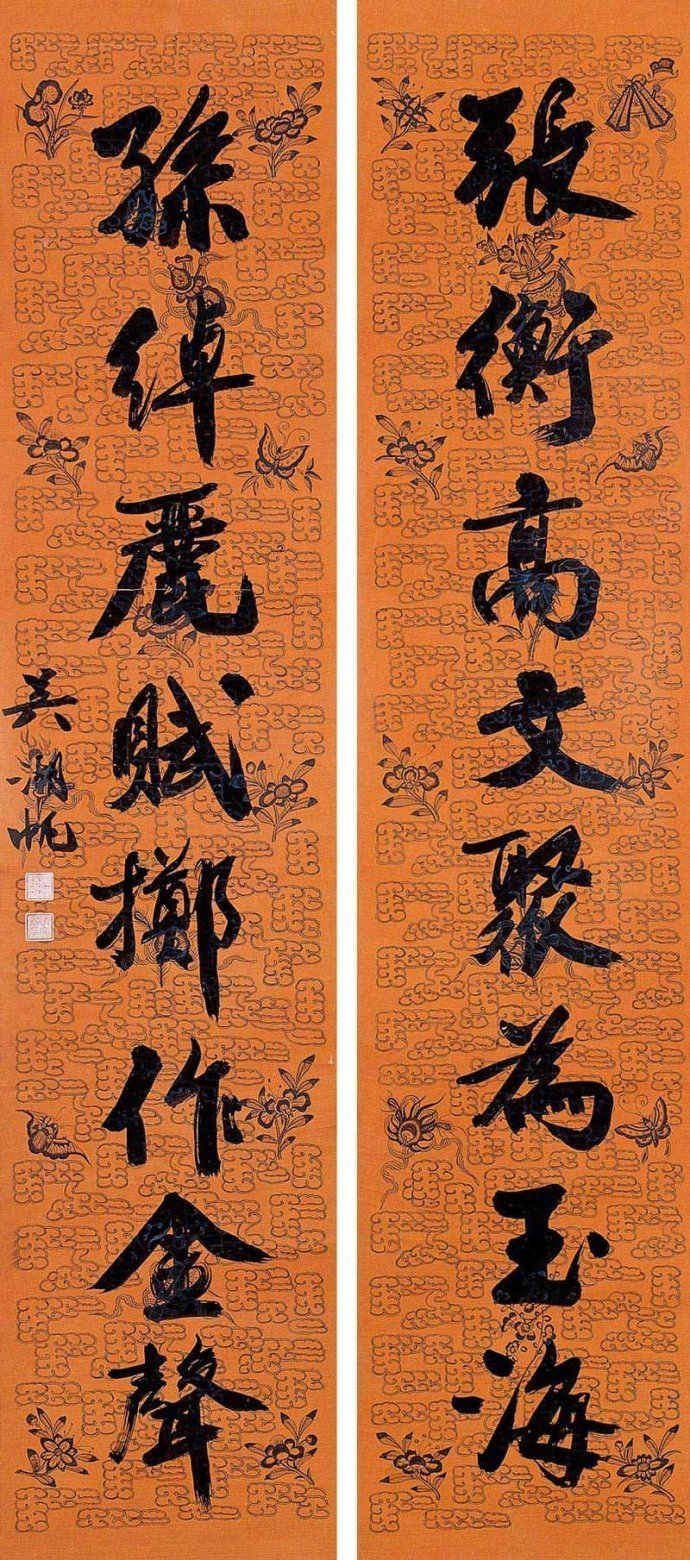 張衡高文聚為玉海
孫綽麗賦擲作金聲
吴湖帆